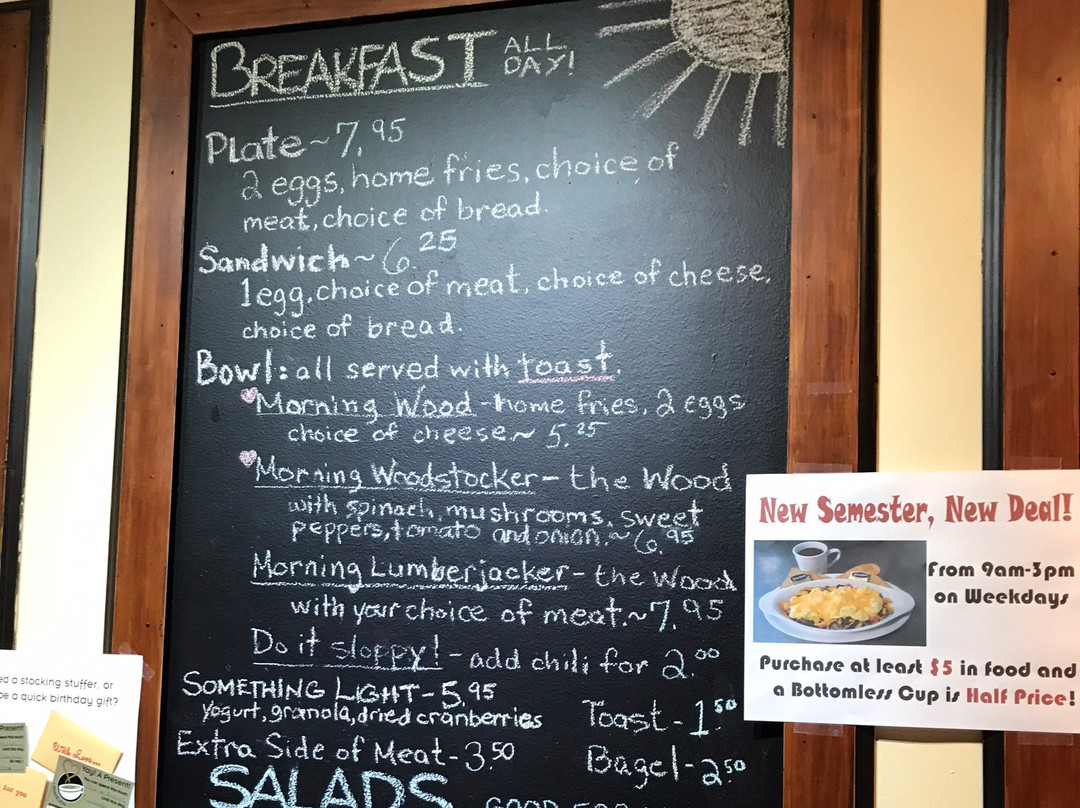 BREAKFAST ALL DAY!
Plate~7.95
2 eggs, home fries, choice of
meat, choice of bread.
Sandwich~6.25
1egg, choice of meat, choice of cheese,
choice of bread.
Bowl: all served with toast.
Morning Wood-home fries, 2 eggs
choice of cheese~ 5.25
Morning Woodstocker- the Wood
with spinach, mushrooms, sweet
peppers, tomato and onion.~6.95
Morning Lumberjacker- the Wood
with your choice of meat.~7.95
Do it sloppy!-add chili for 2.00
SOMETHING LIGHT-5.95
Yogurt, granola, dried cranberries
Extra Side of Meat-3.50
Toast-1.50
Bagel-2.50
SALADS
New Semester, New Deal!
From 9am-3pm
on Weekdays
Purchase at least $5 in food and
a Bottomless Cup is Half Price!
a stocking stuffer, or
a quick birthday gift?
With Love...
Yay! A Present!
for you